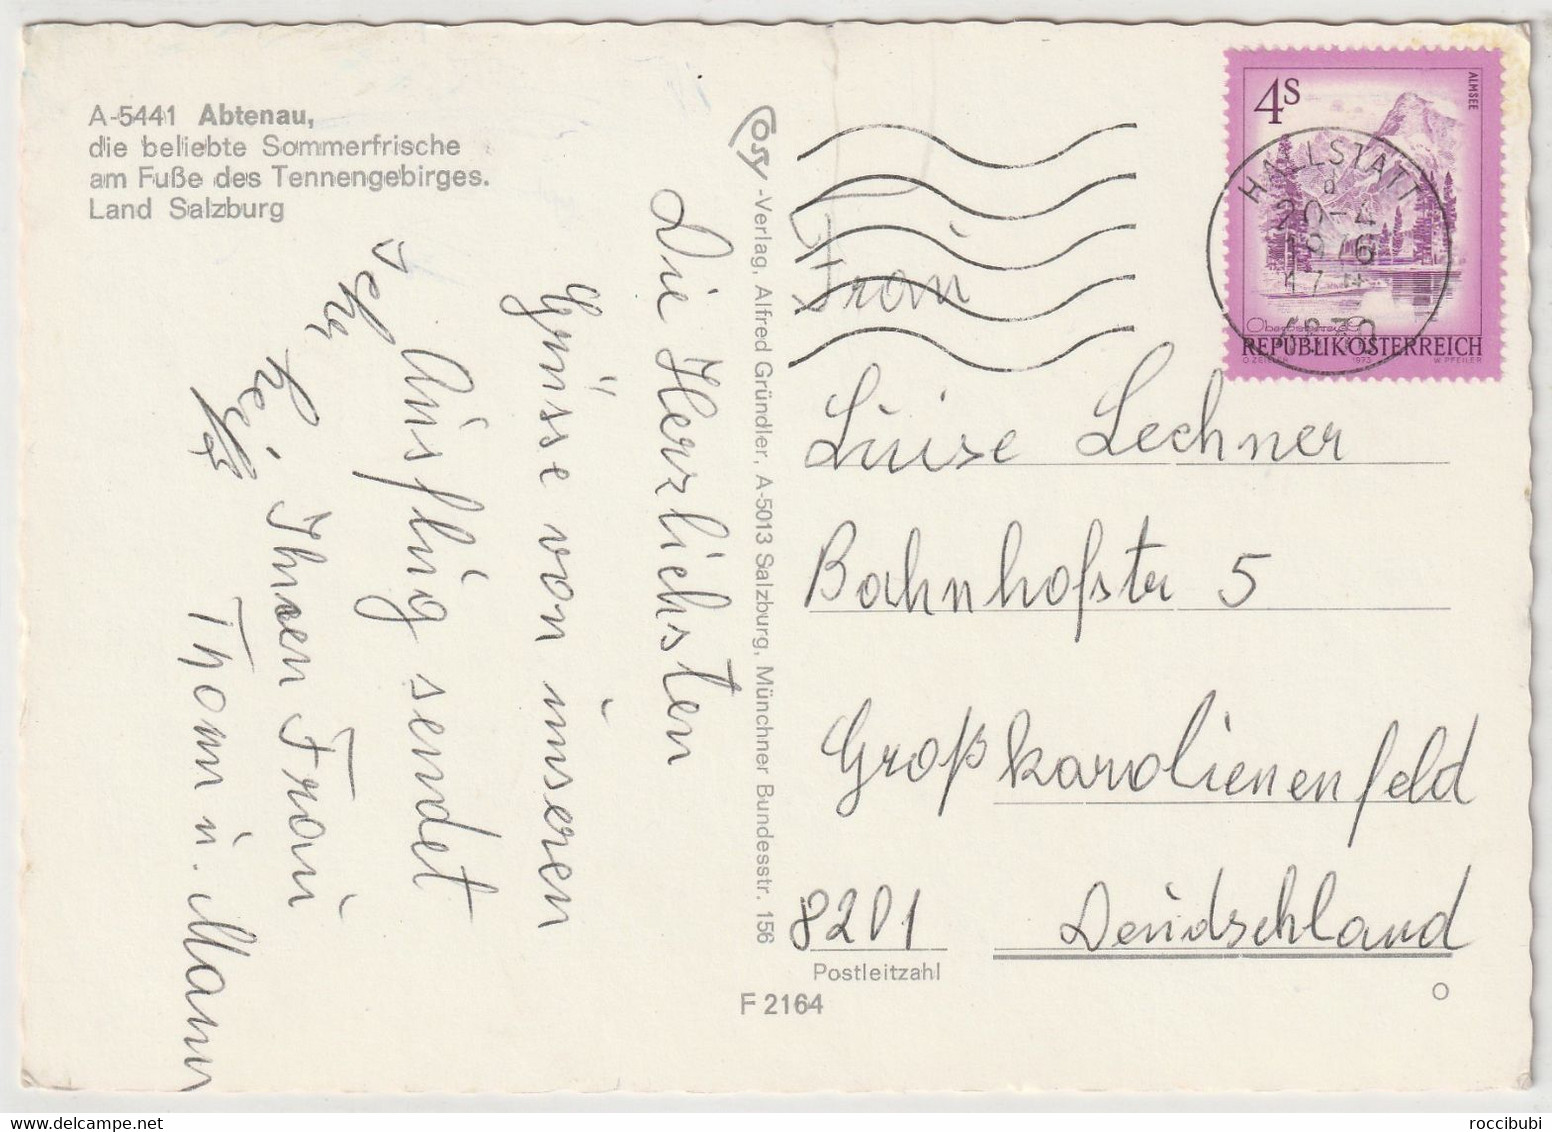 A-5441 Abtenau,
die beliebte Sommerfrische
am Fuße des Tennengebirges.
Land Salzburg
Die Herzlichsten
Grüsse von unseren
Ausflug sendet
Ihnen Frau
Thom u. Mann
Cosy
-Verlag, Alfred Gründler, A-5013 Salzburg, Münchner Bundesstr. 156
4S
ALMSEE
REPUBLIK ÖSTERREICH
O. ZEILLER 1973 W. PFEILER
HALLSTATT
d
20-4
4830
Frau
Luise Lechner
Bahnhofstr 5
Großkarolienenfeld
8201 Deudschland
Postleitzahl
F 2164
roccibubi